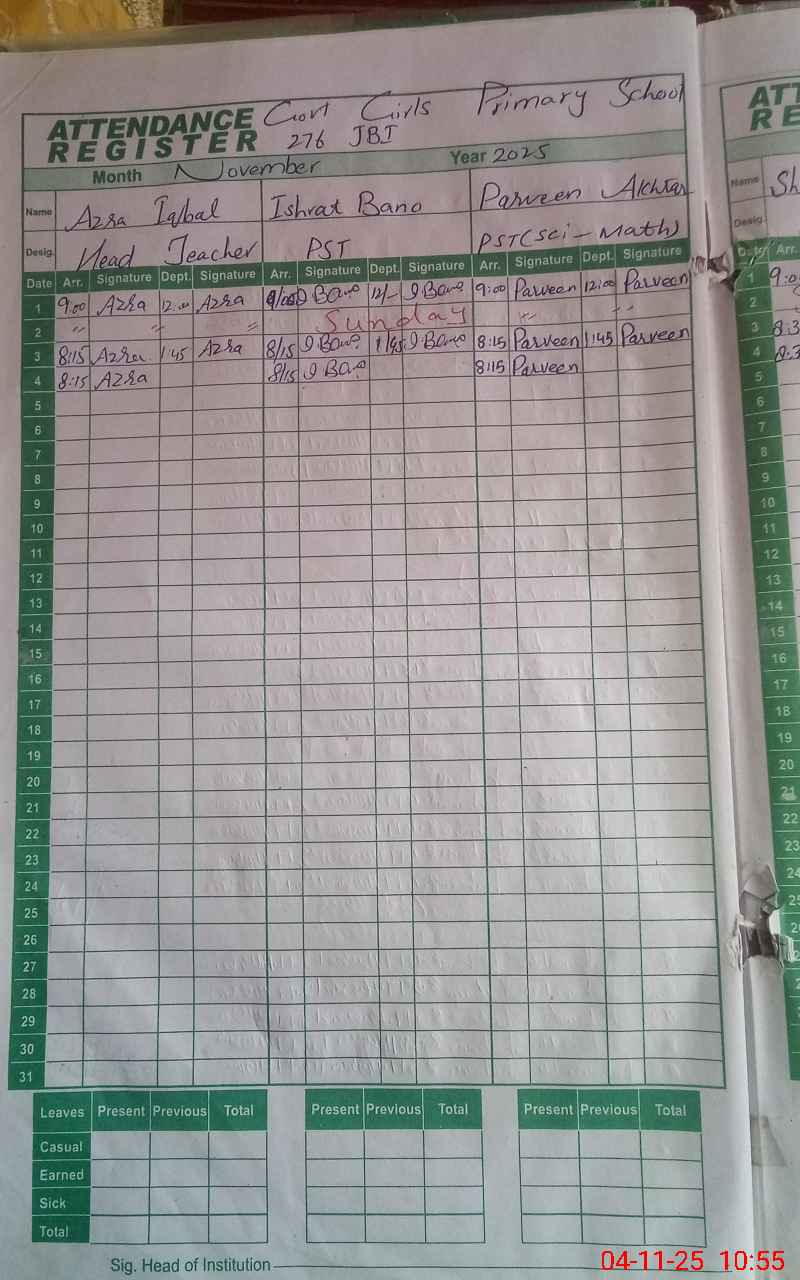 ATTENDANCE REGISTER Govt Girls Primary School
276 JBI
Month November Year 2025
Name Azra Iqbal Ishrat Bano Parveen Akhtar
Desig. Head Teacher PST PST (Sci - Math)
Date Arr. Signature Dept. Signature Arr. Signature Dept. Signature Arr. Signature Dept. Signature
1 9:00 Azra 12:00 Azra 9/00 I Bano 12/- I Bano 9:00 Parveen 12:00 Parveen
2 〃 〃 〃 Sunday 〃 〃
3 8:15 Azra 1:45 Azra 8/15 I Bano 1/45 I Bano 8:15 Parveen 1:45 Parveen
4 8:15 Azra 8/15 I Bano 8:15 Parveen
5
6
7
8
9
10
11
12
13
14
15
16
17
18
19
20
21
22
23
24
25
26
27
28
29
30
31
Leaves Present Previous Total Present Previous Total Present Previous Total
Casual
Earned
Sick
Total
Sig. Head of Institution
04-11-25 10:55
Name Sh
Desig.
Date Arr.
1
2
3
4
5
6
7
8
9
10
11
12
13
14
15
16
17
18
19
20
21
22
23
24
25